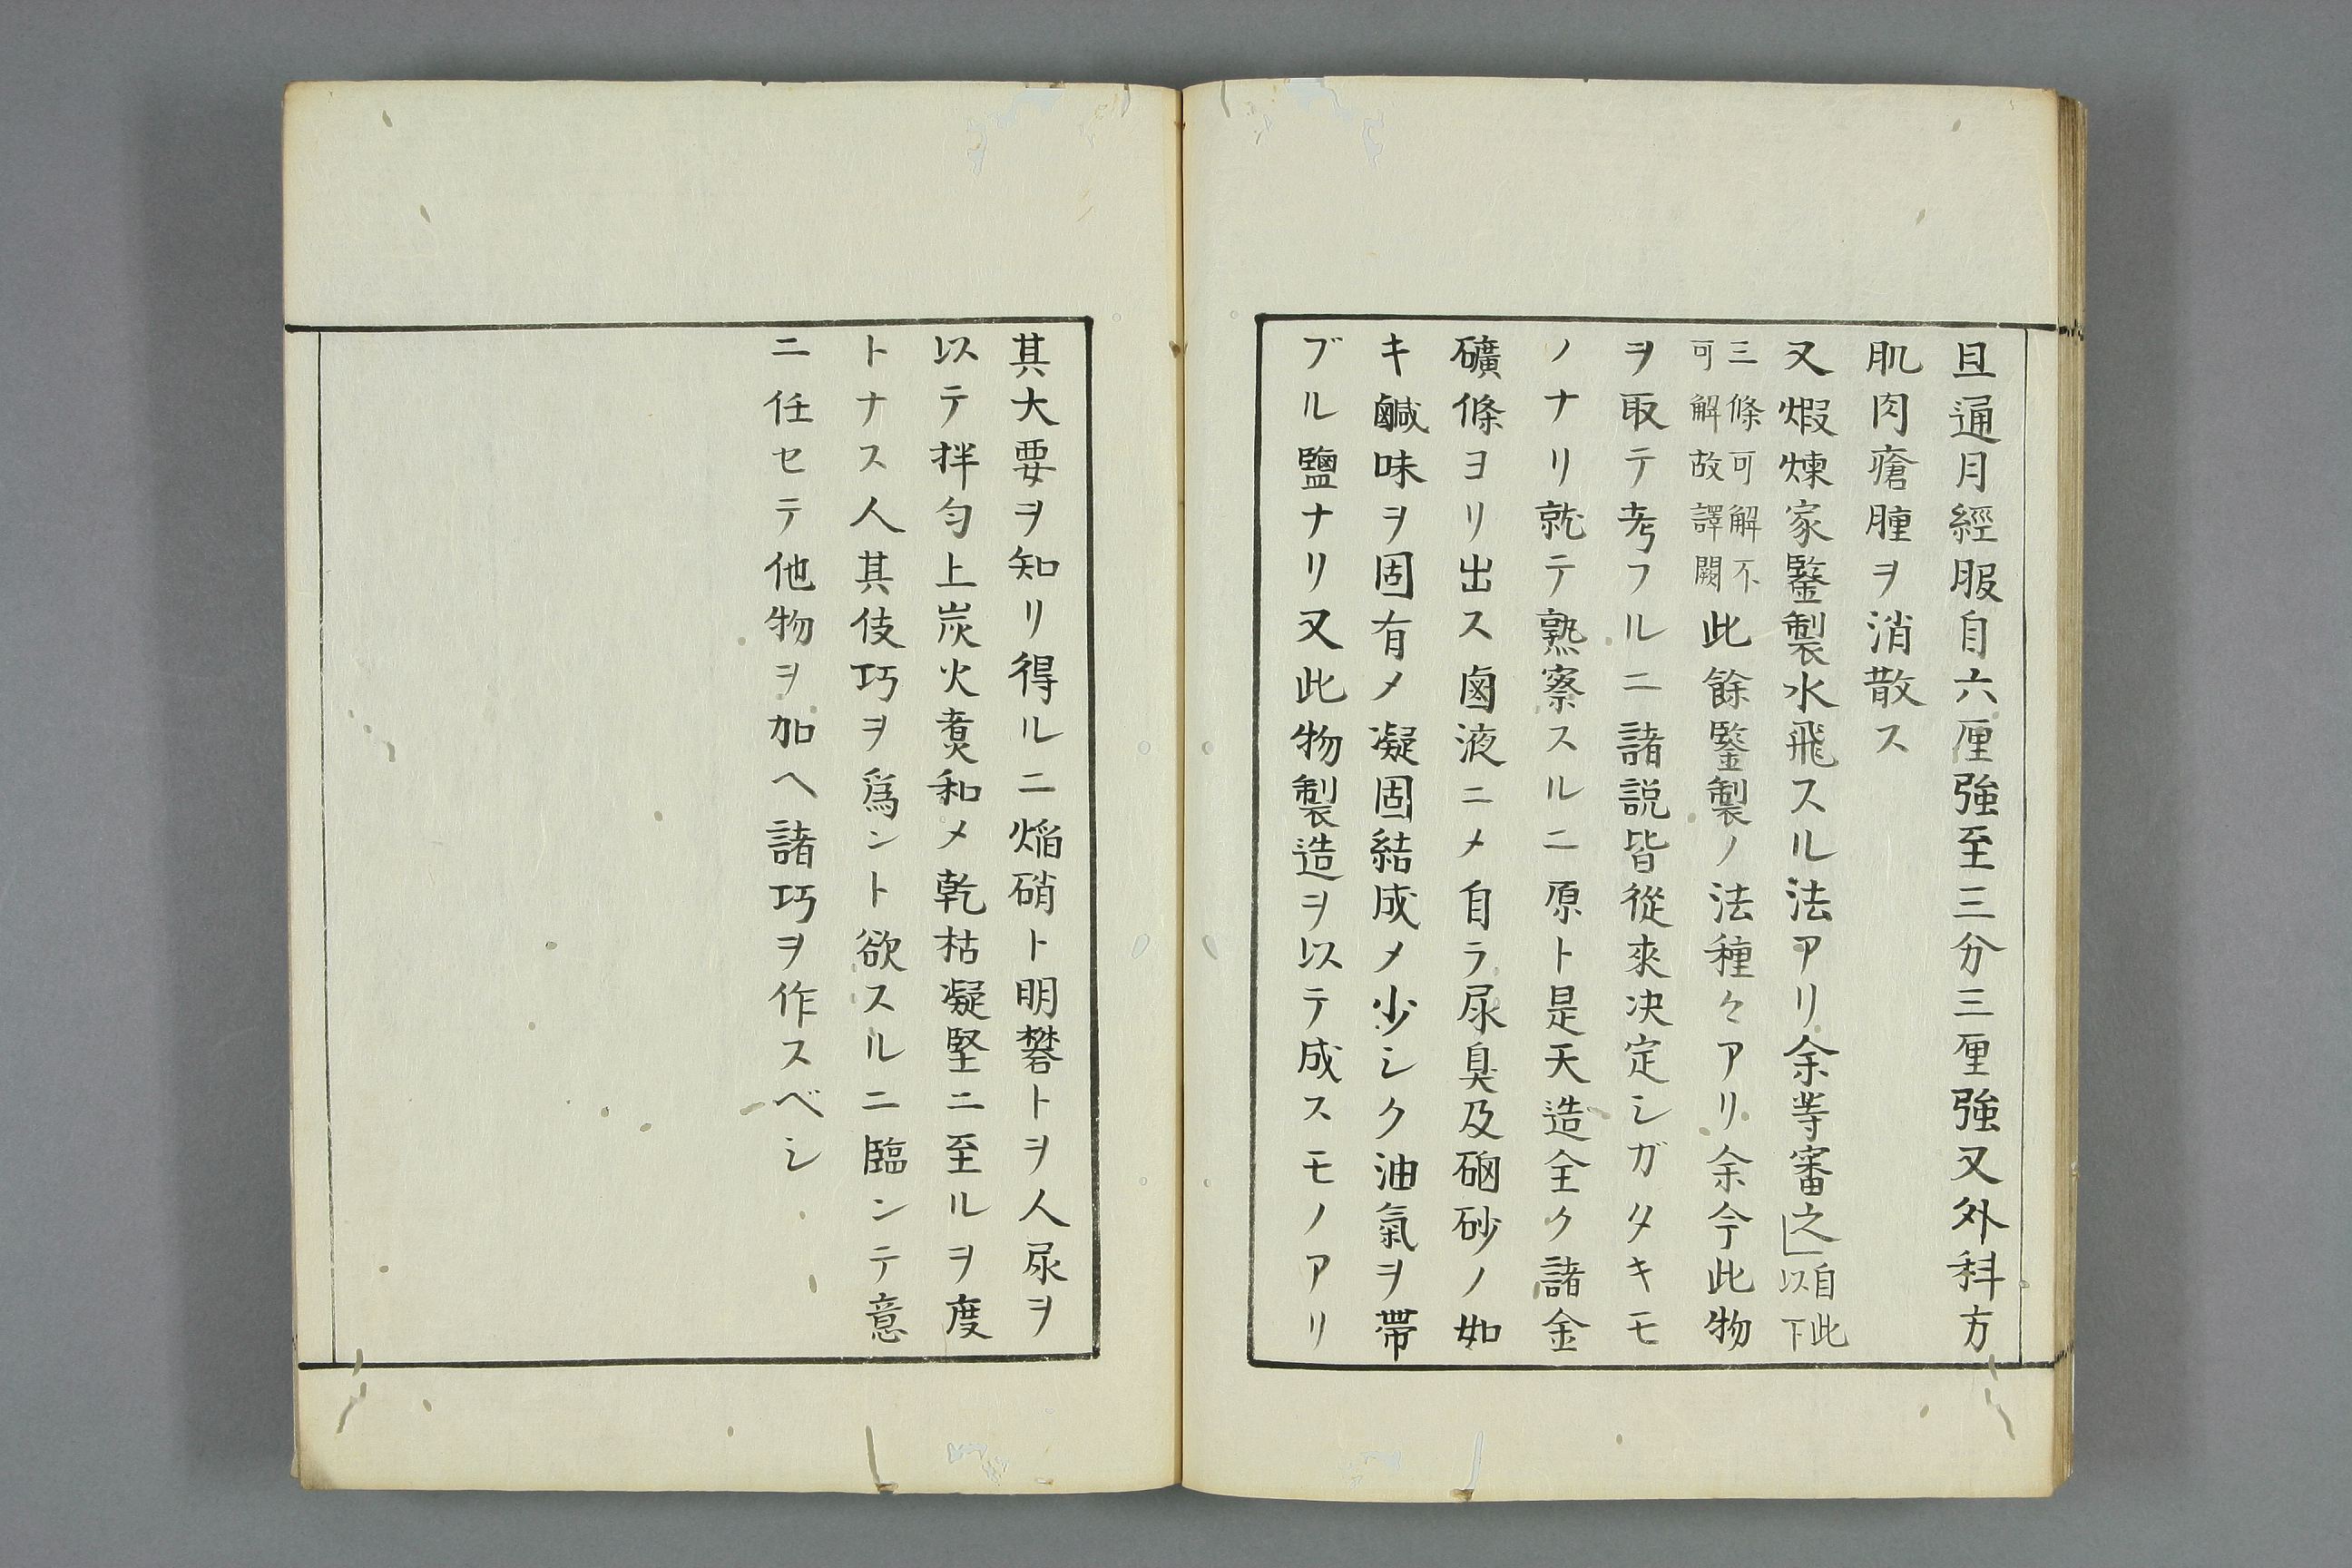 且通月經服自六厘強至三分三厘強又外科方
肌肉瘡腫ヲ消散ス
又煆煉家鑒製水飛スル法アリ余等審之」自此以下
三條可解不可解故譯闕此餘鑒製ノ法種々アリ余今此物
ヲ取テ考フルニ諸説皆從來决定シガタキモ
ノナリ就テ熟察スルニ原ト是天造全ク諸金
礦條ヨリ出ス鹵液ニメ自ラ尿臭及硇砂ノ如
キ鹹味ヲ固有メ凝固結成メ少シク油氣ヲ帶
ブル鹽ナリ又此物製造ヲ以テ成スモノアリ
其大要ヲ知リ得ルニ焔硝ト明礬トヲ人尿ヲ
以テ拌匀上炭火煑和メ乾枯凝堅ニ至ルヲ度
トナス人其伎巧ヲ爲ント欲スルニ臨ンテ意
ニ任セテ他物ヲ加ヘ諸巧ヲ作スベシ